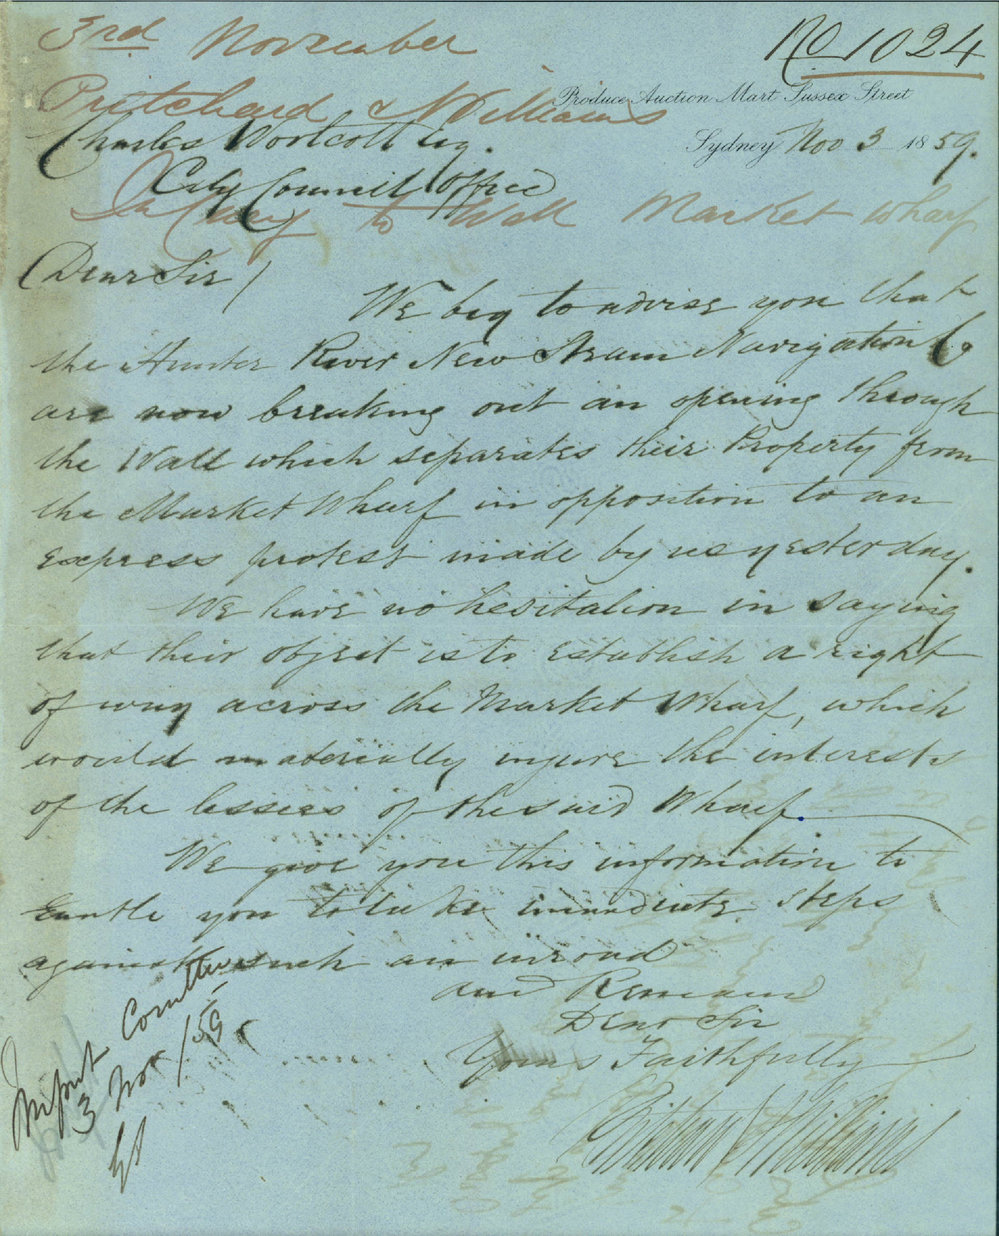 3rd November
No 1024
Pritchard & Williams
Produce Auction Mart Sussex Street
Sydney Nov 3 1859.
Charles Woolcott Esq.
City Council Office
Injury to Wall Market Wharf
Dear Sir/
We beg to advise you that
the Hunter River New Steam Navigation Co
are now breaking out an opening through
the Wall which separates their Property from
the Market Wharf in opposition to an
express protest made by us yesterday.
We have no hesitation in saying
that their object is to establish a right
of way across the Market Wharf, which
would materially injure the interests
of the lessees of the said Wharf.
We give you this information to
Enable you to take immediate steps
against such an inroad
and Remain
Dear Sir
Yours Faithfully
Pritchard & Williams
Improvt Comttee
3 Nov /59